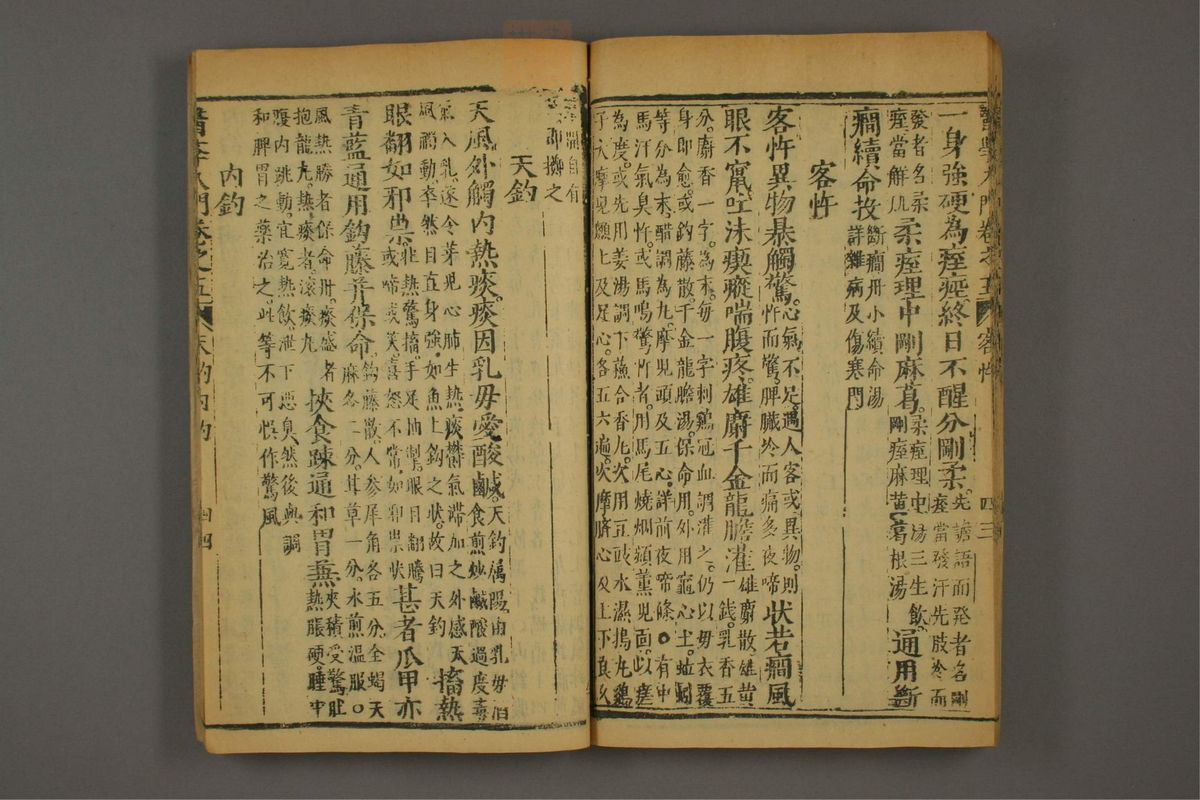 醫學入門卷之五 客忤 四三
一身強硬為痓痓終日不醒分剛柔
先譫語而發者名剛
痓當發汗先肢冷而
發者名柔
痓當解肌
柔痓理中剛麻葛
柔痓理中湯三生飲
剛痓麻黃葛根湯
通用斷
癇續命投
斷癇丹小續命湯
詳雜病及傷寒門
客忤
客忤異物暴觸驚
心氣不足遇人客或異物則
忤而驚脾臟冷而痛多夜啼
狀若癇風
眼不竄吐沫瘈瘲喘腹疼雄麝千金龍膽灌
雄麝散雄黃
一錢乳香五
分麝香一字為末每一字刺鷄冠血調灌之仍以母衣覆
身即愈或鈎藤散千金龍膽湯保命用外用竈心土蚯蚓
等分為末醋調為丸摩兒頭及五心詳前夜啼條○有中
馬汗氣臭忤或馬鳴驚忤者用馬尾燒烟頻薰兒面以瘥
為度或先用姜湯調下蘇合香丸次用豆豉水濕搗丸雞
子大摩兒顖上及足心各五六遍次摩臍心及上下良久
自有
即擲之
天釣
天風外觸內熱痰痰因乳母愛酸鹹
天釣属陽由乳母
食煎炒鹹酸過度毒
氣入乳遂令芽兒心肺生熱痰鬱氣滯加之外感天
風搐動卒然目直身強如魚上鈎之狀故曰天釣
搐熱
眼翻如邪祟
壯熱驚搐手足抽掣眼目翻騰
或啼或笑喜怒不常如邪祟狀
甚者瓜甲亦
青藍通用鈎藤并保命
鈎藤散人參犀角各五分全蝎天
麻各二分甘草一分水煎溫服○
風熱勝者保命丹痰盛者
抱龍丸熱痰者滾痰丸
挾食踈通和胃兼
夹積受驚肚
熱脹硬腫中
腹內跳動宜寬熱飲泄下惡臭然後與調
和脾胃之藥治之此等不可悮作驚風
內釣
醫學入門卷之五 天釣內釣 四四